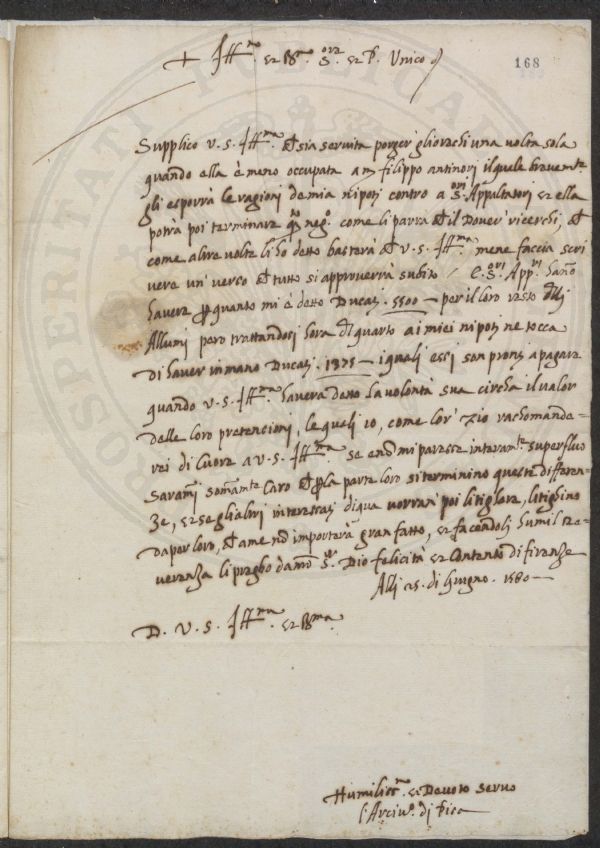 168
+ Ill.mo et R.mo S.or et P. Unico
Supplico V. S. Ill.ma ch' sia servita porger gl'orechi una volta sola
quando ella è meno occupata a m filippo antinori il quale bravem.te
gli esporrà le ragioni de mia nipoti contro a S.ori Appaltatori et ella
potrà poi terminare q.sto neg.o come li parrà ch' il Dover' ricerchi, ch'
come altre volte li hò detto basterà ch' V. S. Ill.ma me ne faccia scri
vere un' verso ch' tutto si approverrà subito / E S.ori App.ri hano
havere p quanto mi è detto Ducati. 5500 — per il loro resto delli
Allumi però trattandosi hora del quarto ai miei nipoti ne tocca
Di haver in mano Ducati. 1375 — i quali essi son pronti a pagare
quando V. S. Ill.ma haverà detto la volontà sua circha il valor
delle loro pretencioni, le quali io, come lor' Zio rachomande-
rei di Cuore a V. S. Ill.ma se eno mi paresse interam.te superfluo
Sarami somam.te Caro ch' p la parte loro si terminino queste differen
ze, et se gli altri interessati di qua vorran' poi litighare, litighino
da por loro, ch' a me no importerà gran fatto, et facendoli humil re-
verenza li pregho da nro S.re Dio felicità et Contento di firenze
Alli 25. di Giugno. 1580 —
D. V. S. Ill.ma et R.ma
Humiliss.o et Devoto servo
l'Arciv.o di Pisa
PROSPERITATI PUBLICAE